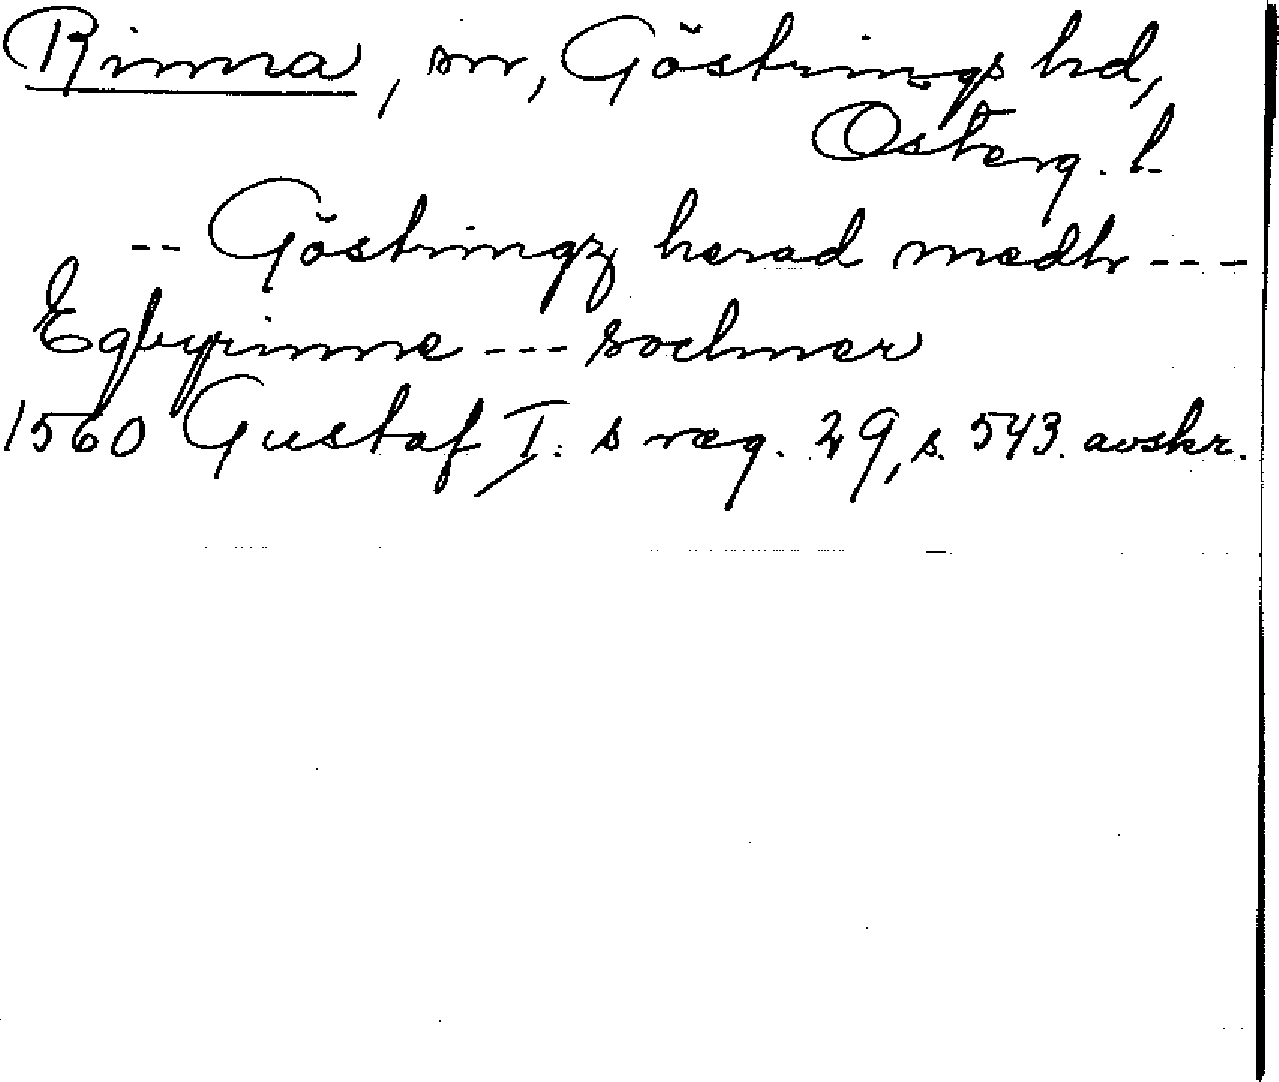 Rinna, sn, Göstrings hd,
Österg. l.
-- Göstringz herad medh ---
Egbyrinne --- sochner
1560 Gustaf I: s reg. 29, s. 543. avskr.